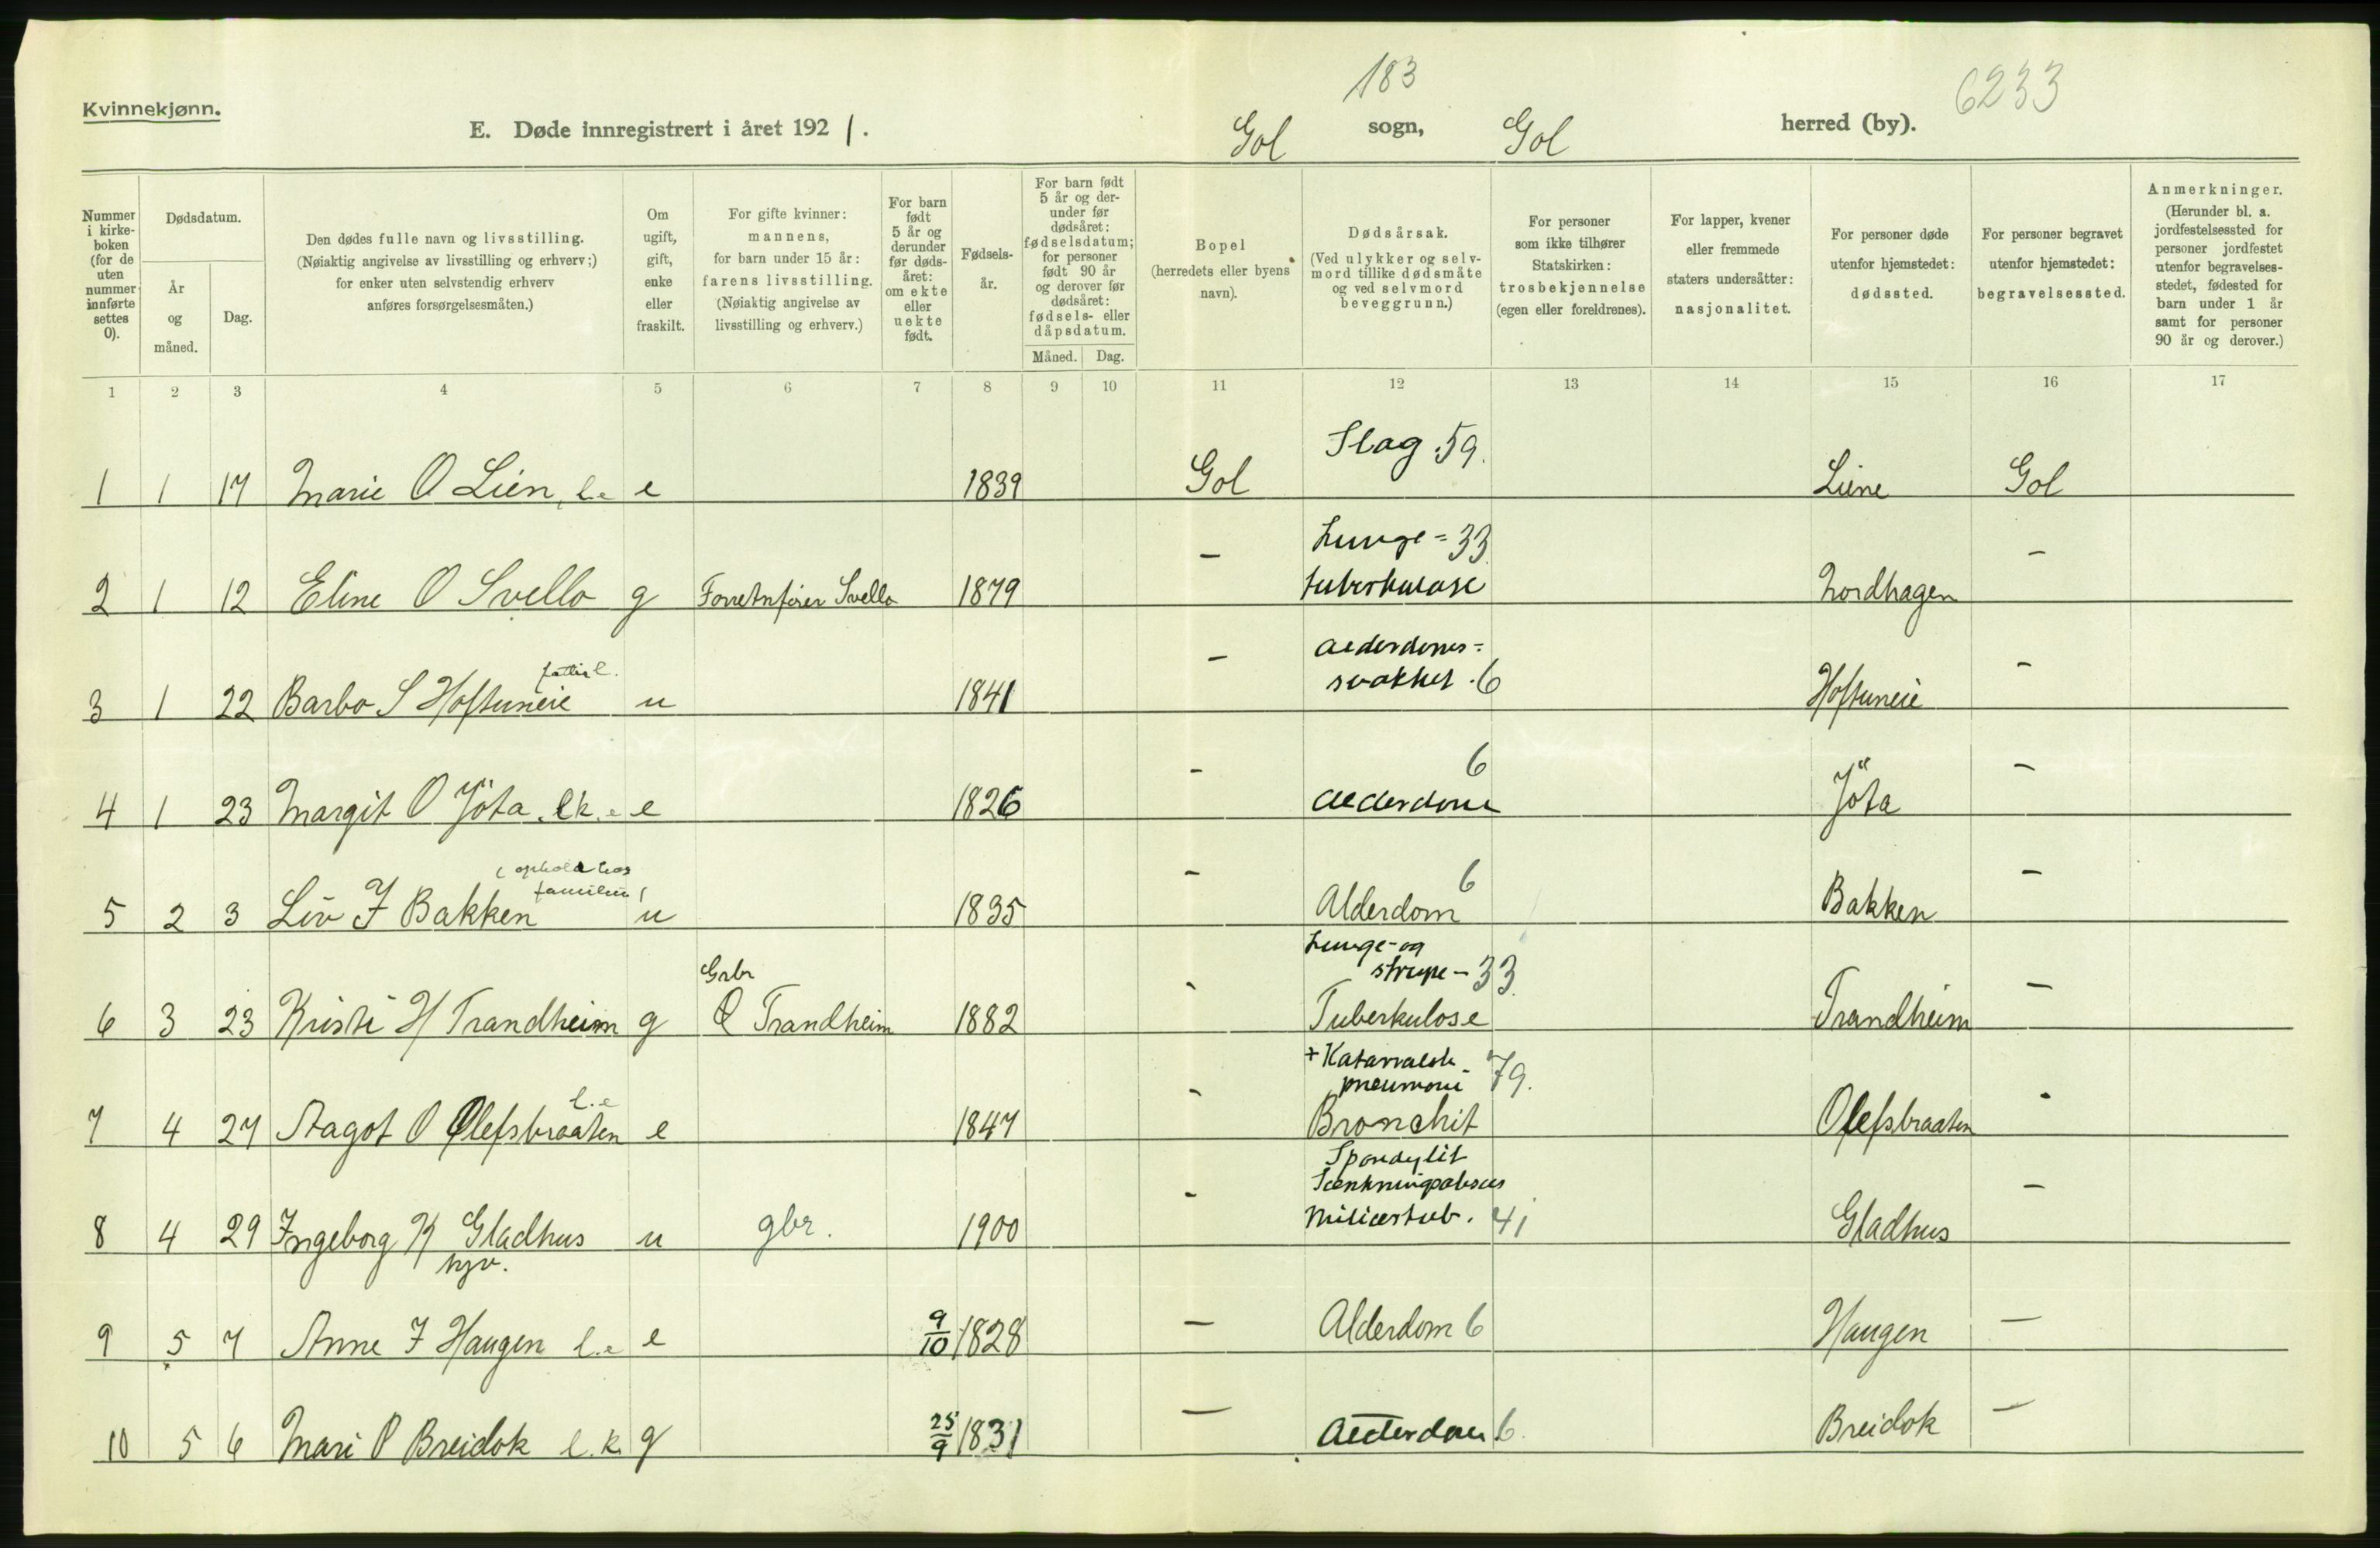 183
6233
Kvinnekjønn.
E. Døde innregistrert i året 1921. Gol sogn, Gol herred (by).
Nummer i kirke- boken (for de uten nummer innførte settes 0).
Dødsdatum.
År og måned.
Dag.
Den dødes fulle navn og livsstilling.
(Nøiaktig angivelse av livsstilling og erhverv;)
for enker uten selvstendig erhverv
anføres forsørgelsesmåten.)
Om ugift, gift, enke eller fraskilt.
For gifte kvinner:
mannens,
for barn under 15 år:
farens livsstilling.
(Nøiaktig angivelse av
livsstilling og erhverv.)
For barn født 5 år og derunder før døds- året: om ekte eller uekte født.
Fødsels- år.
For barn født
5 år og der-
under før
dødsåret:
fødselsdatum;
for personer
født 90 år
og derover før
dødsåret:
fødsels- eller
dåpsdatum.
Måned. Dag.
Bopel
(herredets eller byens
navn).
Dødsårsak.
(Ved ulykker og selv-
mord tillike dødsmåte
og ved selvmord
beveggrunn.)
For personer
som ikke tilhører
Statskirken:
trosbekjennelse
(egen eller foreldrenes).
For lapper, kvener
eller fremmede
staters undersåtter:
nasjonalitet.
For personer døde
utenfor hjemstedet:
dødssted.
For personer begravet
utenfor hjemstedet:
begravelsessted.
Anmerkninger.
(Herunder bl. a.
jordfestelsessted for
personer jordfestet
utenfor begravelses-
stedet, fødested for
barn under 1 år
samt for personer
90 år og derover.)
1 2 3 4 5 6 7 8 9 10 11 12 13 14 15 16 17
Slag 59.
1 1 17 Marie O Lien, l.e e 1839 Gol Liene Gol
Lunge= 33
2 1 12 Eline O Svello g Forretnfører Svello 1879 – tuberkulose Nordhagen –
Alderdoms=
3 1 22 Barbo S Hoftuneie u 1841 – svakhet 6 Hoftuneie –
6
4 1 23 Margit O Jöta lk. e e 1826 – Alderdom Jöta –
(ophold hos
familien)
6
5 2 3 Liv J Bakken u 1835 – Alderdom Bakken –
Lunge- og
Grbr strupe- 33
6 3 23 Kristi H Trandheim g O Trandheim 1882 - Tuberkulose Trandheim –
+ Katarralsk
pneumoni 79.
l.e
7 4 27 Aagot O Olefsbraaten e 1847 - Bronchit Olefsbraaten -
Spondylit
Senkningsabsces
8 4 29 Ingeborg K Gladhus u gbr. 1900 - Miliærtub. 41 Gladhus –
9 5 7 Anne J Haugen l.e e 9/10 1828 – Alderdom 6 Haugen –
10 5 6 Mari O Breidok l.k. g 25/9 1831 – Alderdom 6. Breidok –